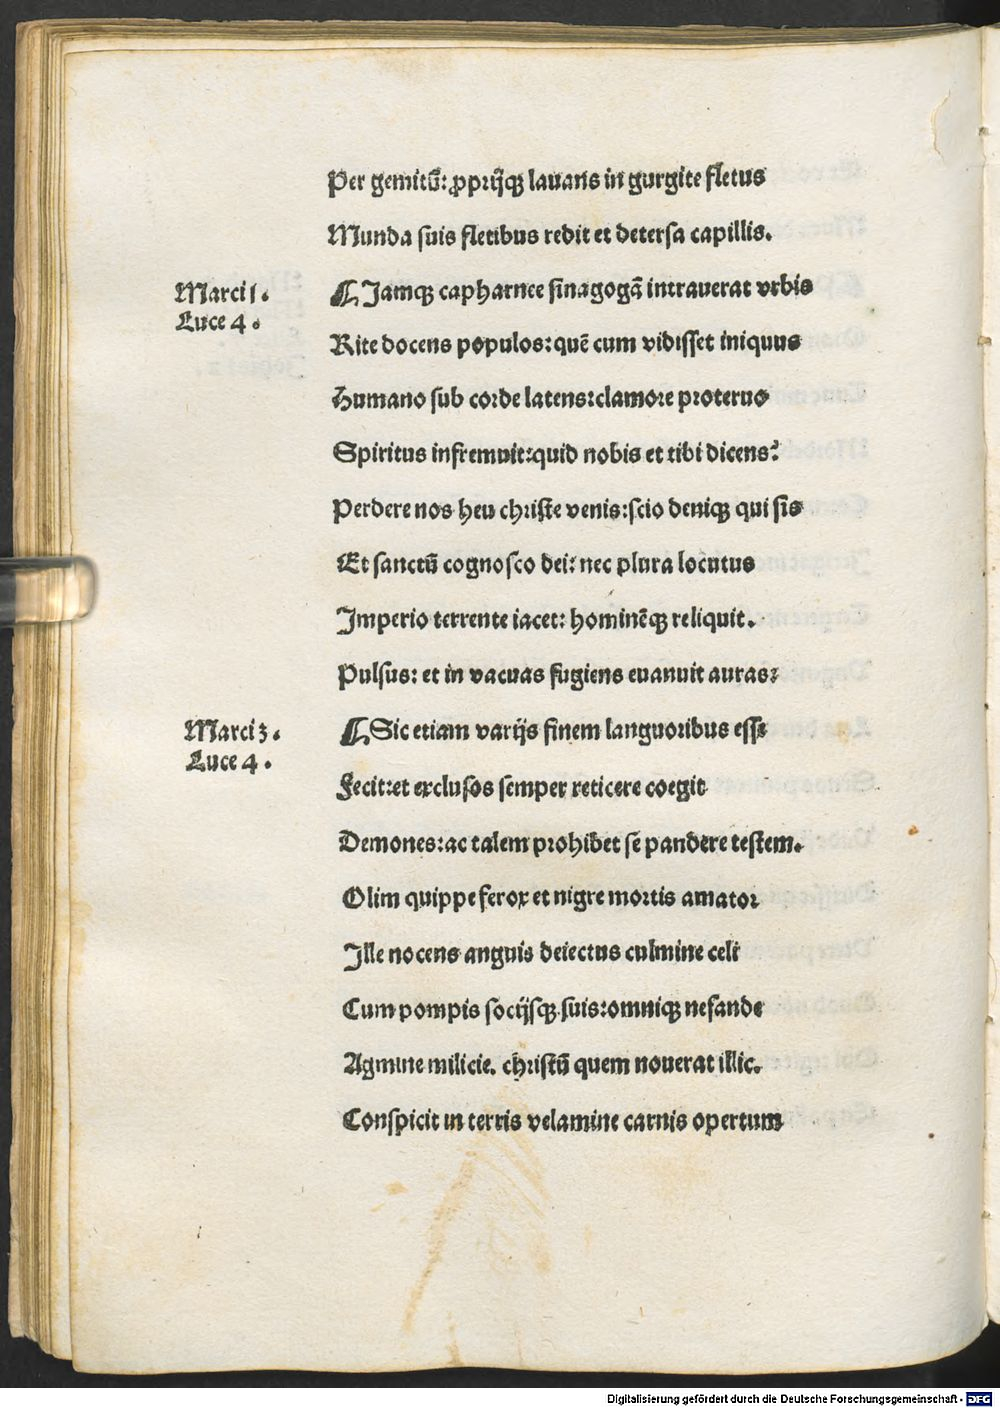 Per gemitū: ꝓprijsqꝫ lauans in gurgite fletus
Munda suis fletibus redit et detersa capillis.
Marci 1.
Luce 4.
¶ Jamqꝫ capharnee sinagogā intrauerat vrbis
Rite docens populos: quē cum vidisset iniquus
Humano sub corde latens: clamore proteruo
Spiritus infremuit: quid nobis et tibi dicens?
Perdere nos heu christe venis: scio deniqꝫ qui sis
Et sanctū cognosco dei: nec plura locutus
Imperio terrente iacet: hominēqꝫ reliquit.
Pulsus: et in vacuas fugiens euanuit auras:
Marci 3.
Luce 4.
¶ Sic etiam varijs finem languoribus esse
Fecit: et exclusos semper reticere coegit
Demones: ac talem prohibet se pandere testem.
Olim quippe ferox et nigre mortis amator
Ille nocens anguis deiectus culmine celi
Cum pompis socijsqꝫ suis: omniqꝫ nefande
Agmine milicie. christū quem nouerat illic.
Conspicit in terris velamine carnis opertum
Digitalisierung gefördert durch die Deutsche Forschungsgemeinschaft - DFG